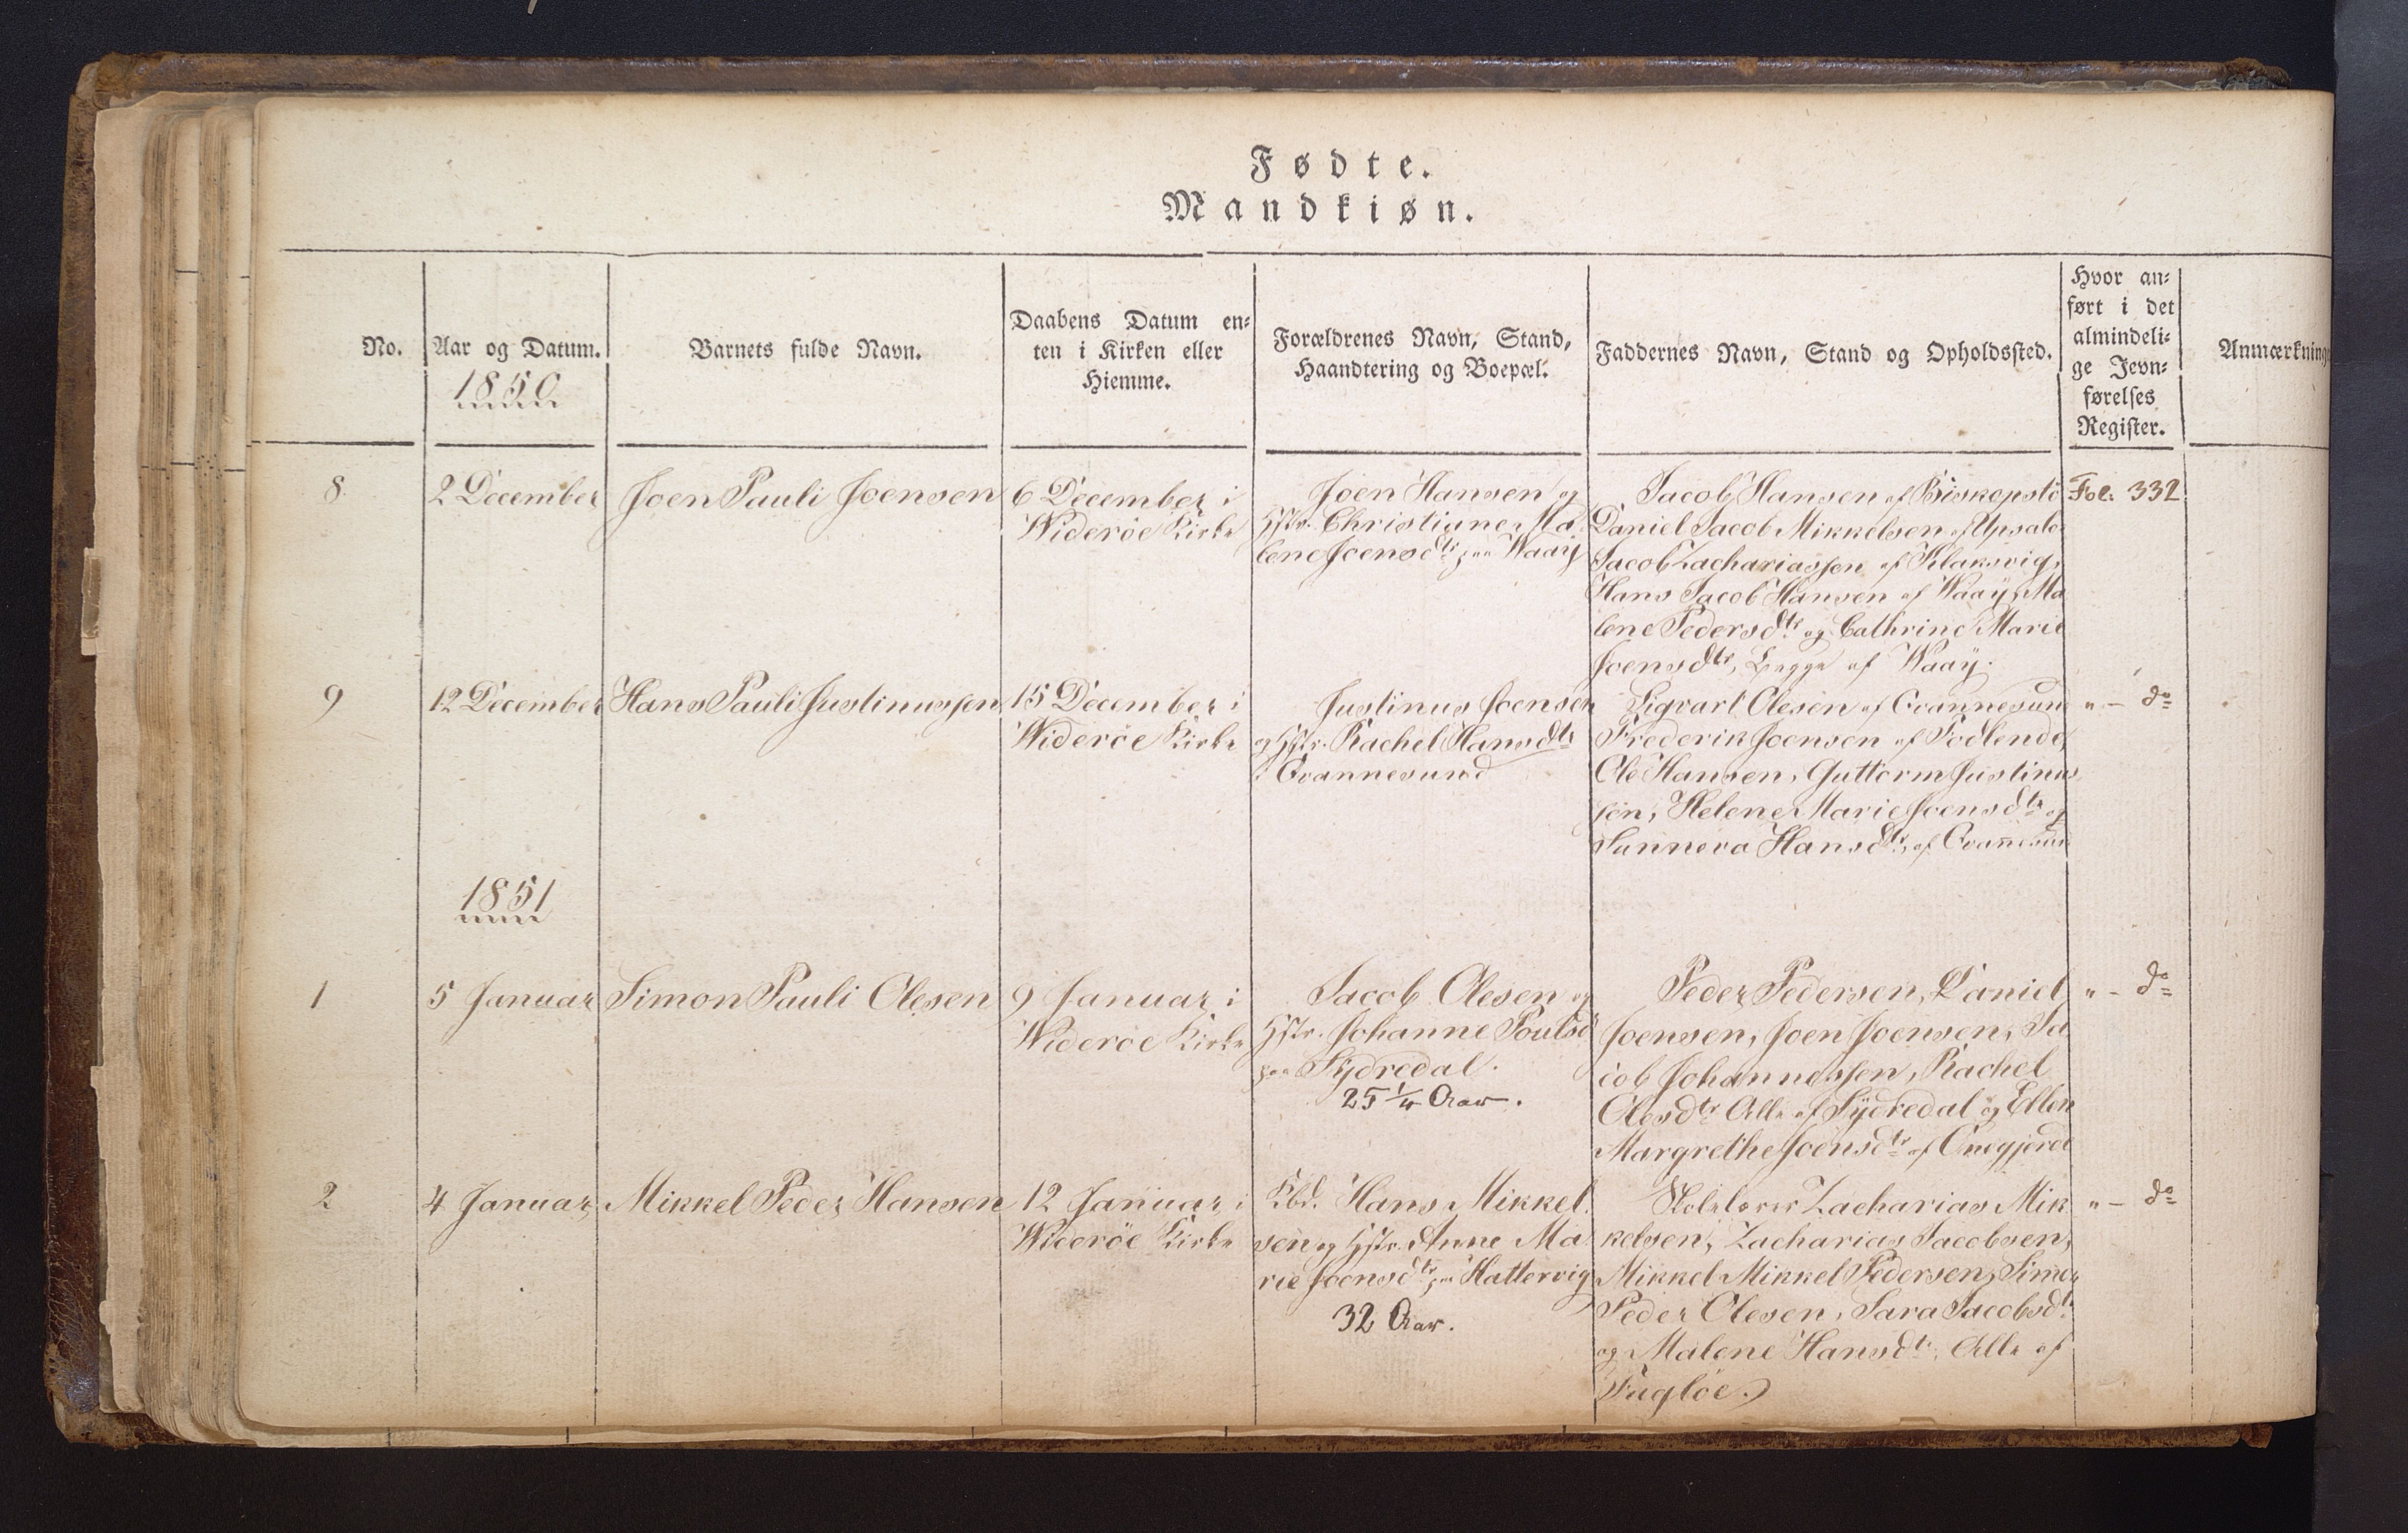 Fødte.
Mandkiøn.
No.
Aar og Datum.
1850
Barnets fulde Navn.
Daabens Datum en-
ten i Kirken eller
Hiemme.
Forældrenes Navn, Stand,
Haandtering og Boepæl.
Faddernes Navn, Stand og Opholdssted.
Hvor an-
ført i det
almindeli-
ge Jevn-
førelses
Register.
Anmærkning
8
2 December
Joen Pauli Joensen
6 December i
Widerøe Kirke
Joen Hansen og
Hstr. Christiane Ma
lene Joensdtr paa Waaÿ
Jacob Hansen af Biskopstö
Daniel Jacob Mikkelsen af Upsale
Jacob Zachariassen af Klaksvig,
Hans Jacob Hansen af Waaÿ, Ma
lene Pedersdtr og Cathrine Marie
Joensdtr, Begge af Waaÿ.
Fol. 332
9
12 December
Hans Pauli Justinussen
15 December i
Widerøe Kirke
Justinus Joensen
og Hstr. Rachel Hansdtr
i Qvannesund
Sigvart Olesen af Qvannesun
Frederik Joensen af Podlende,
Ole Hansen, Guttorm Justinus
sen, Helene Marie Joensdtr og
Sunneva Hansdtr, af Qvannesun
" - do
1851
1
5 Januar
Simon Pauli Olesen
9 Januar i
Widerøe Kirke
Jacob Olesen og
Hstr. Johanne Poulsd
paa Sÿdredal.
25 1/4 Aar.
Peder Pedersen, Daniel
Joensen, Joen Joensen, Ja
cob Johannessen, Rachel
Olesdtr Alle af Sÿdredal og Ellen
Margrethe Joensdtr af Qnegjerde
" - do
2
4 Januar
Mikkel Peder Hansen
12 Januar i
Widerøe Kirke
Kbd. Hans Mikkel
sen og Hstr. Anne Ma
rie Joensdtr paa Hattervig
32 Aar.
Skolelærer Zacharias Mik
kelsen, Zacharias Jacobsen,
Mikkel Mikkel Pedersen, Simon
Peder Olesen, Sara Jacobsdtr
og Malene Hansdtr, Alle af
Fugløe.
" - do